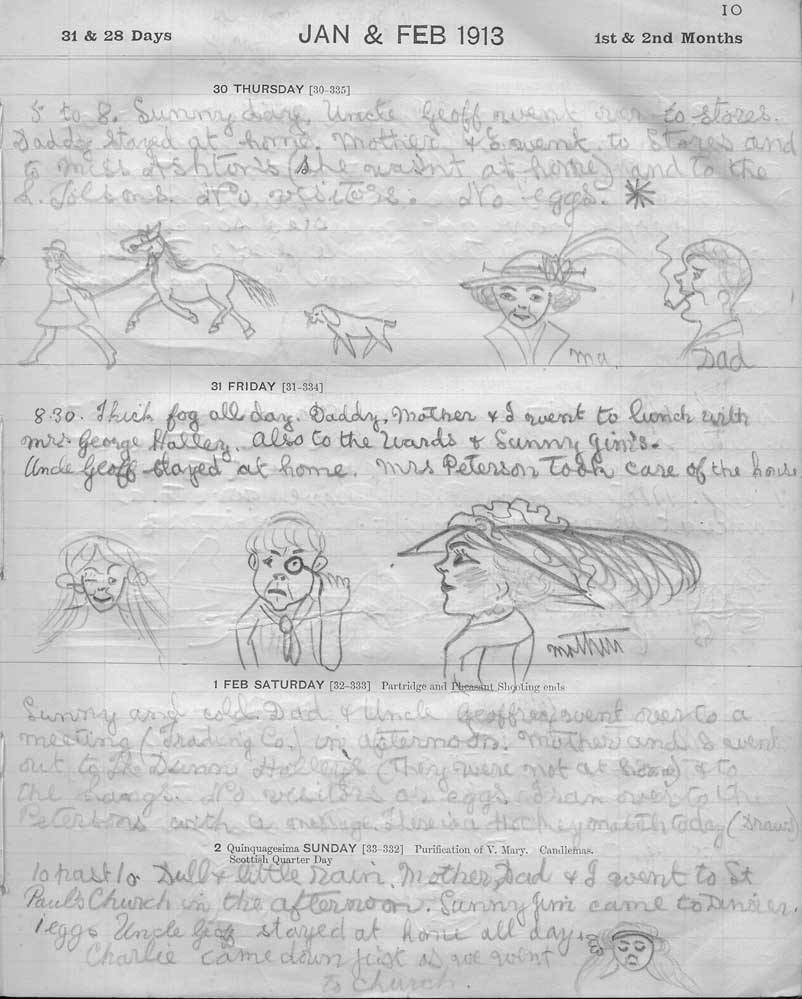 10
31 & 28 Days JAN & FEB 1913 1st & 2nd Months
30 THURSDAY [30-335]
5 to 8. Sunny day. Uncle Geoff went over to stores.
Daddy stayed at home. Mother & I went to Stores and
to Miss Ashton's (she wasn't at home) and to the
L. Tolsons. No visitors. No eggs.
ma. Dad
31 FRIDAY [31-334]
8.30. Thick fog all day. Daddy, Mother & I went to lunch with
Mrs. George Halley. Also to the Wards & Sunny Jim's.
Uncle Geoff stayed at home. Mrs Peterson took care of the house
mother
1 FEB SATURDAY [32-333] Partridge and Pheasant Shooting ends
Sunny and cold. Dad & Uncle Geoffrey went over to a
meeting (Trading Co.) in afternoon. Mother and I went
out to The Dunn Halley's (They were not at home) & to
the Langs. No visitors or eggs. I ran over to the
Petersons with a message. There is a Hockey match today (Drawn)
2 Quinquagesima SUNDAY [33-332] Purification of V. Mary. Candlemas.
Scottish Quarter Day
10 past 10. Dull & little rain. Mother, Dad & I went to St
Paul's Church in the afternoon. Sunny Jim came to Dinner.
1 eggs Uncle Geoff stayed at home all day.
Charlie came down just as we went
to Church.